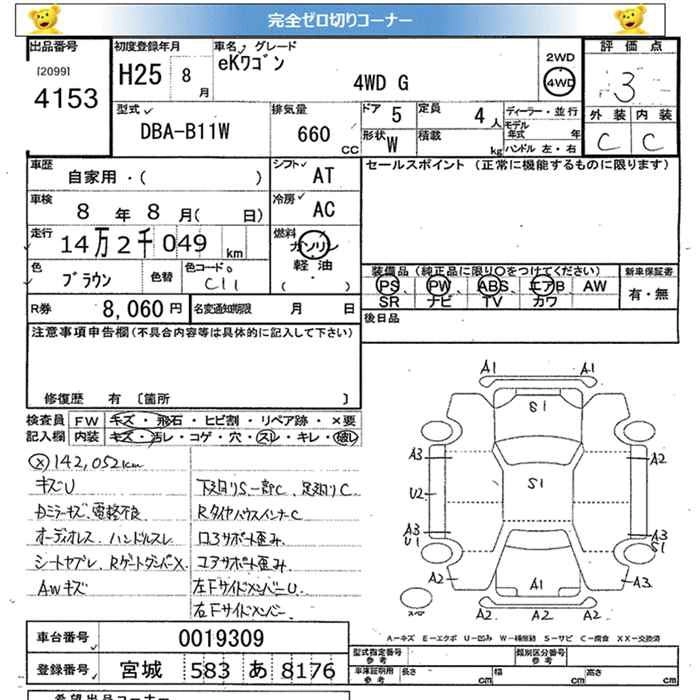 完全ゼロ切りコーナー
出品番号 初度登録年月 車名 グレード 評価点
[2099] 4153 H25 8月 eKワゴン 4WD G 2WD 4WD 3
型式 排気量 ドア 5 定員 4人 ディーラー・並行 外装 内装
DBA-B11W 660CC 形状 W 積載 kg モデル年式 年 ハンドル 左・右 C C
車歴 自家用・( ) シフト AT セールスポイント (正常に機能するものに限ります)
車検 8年 8月( 日) 冷房 AC
走行 14万2千049km 燃料 ガソリン
色 ブラウン 色替 色コード C11 軽油 ( )
装備品 (純正品に限り○をつけてください) 新車保証書
PS、PW、ABS、エアB AW 有・無
SR ナビ TV カワ
R券 8,060円 名変通知期限 月 日 後日品
注意事項申告欄(不具合内容等は具体的に記入して下さい)
修復歴 有 〔箇所 〕
検査員 FW キズ・飛石・ヒビ割・リペア跡・×要
記入欄 内装 キズ・汚レ・コゲ・穴・スレ・キレ・破レ
(x)142,052km
キズU 下廻りS.一部C、足廻りC
Dミラーキズ、電格不良 RタイヤハウスインナーC
オーディオレス、ハンドルスレ ロアサポート歪み
シートヤブレ、RゲートダンパーX コアサポート歪み
AWキズ 左FサイドメンバーU
左Fサイドメンバー
A1 A1
S1
A3 A2
U2 S1
A3 U1 A3 S1
A2 A1 A3
スペア A2 A2 A2
A-キズ E-エクボ U-凹み W-補修跡 S-サビ C-腐食 XX-交換済
車台番号 0019309
型式指定番号 参考 類別区分番号 参考
登録番号 宮城 583 あ 8176
車庫証明用 参考 長さ cm 幅 cm 高さ cm
希望出品コーナー